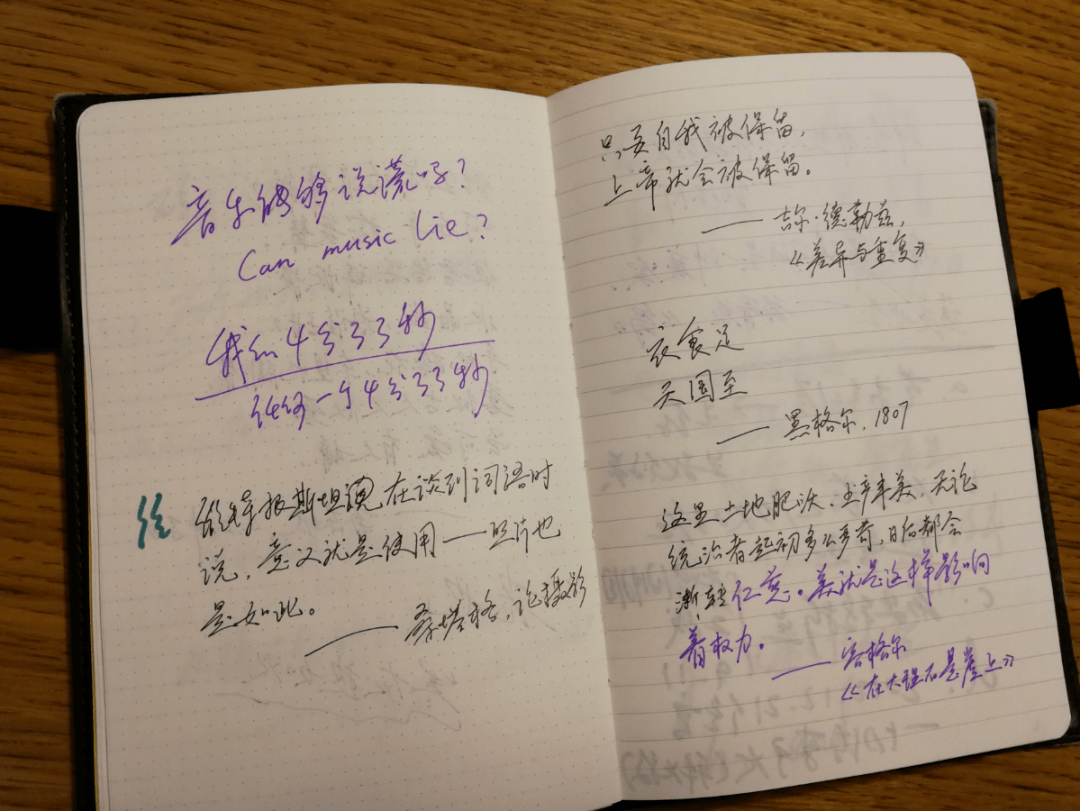 音乐能够说谎吗?
Can music lie?
我的4分33秒
任何一个4分33秒
维特根斯坦在谈到词语时
说，意义就是使用——照片也
是如此。
——桑塔格，论摄影
只要自我被保留，
上帝就会被保留。
——吉尔·德勒兹，
《差异与重复》
衣食足
天国至
——黑格尔，1807
这里土地肥沃、生产丰美，无论
统治者起初多么严苛，日后都会
渐转仁慈。美就是这样影响
着权力。
——容格尔
《在大理石悬崖上》